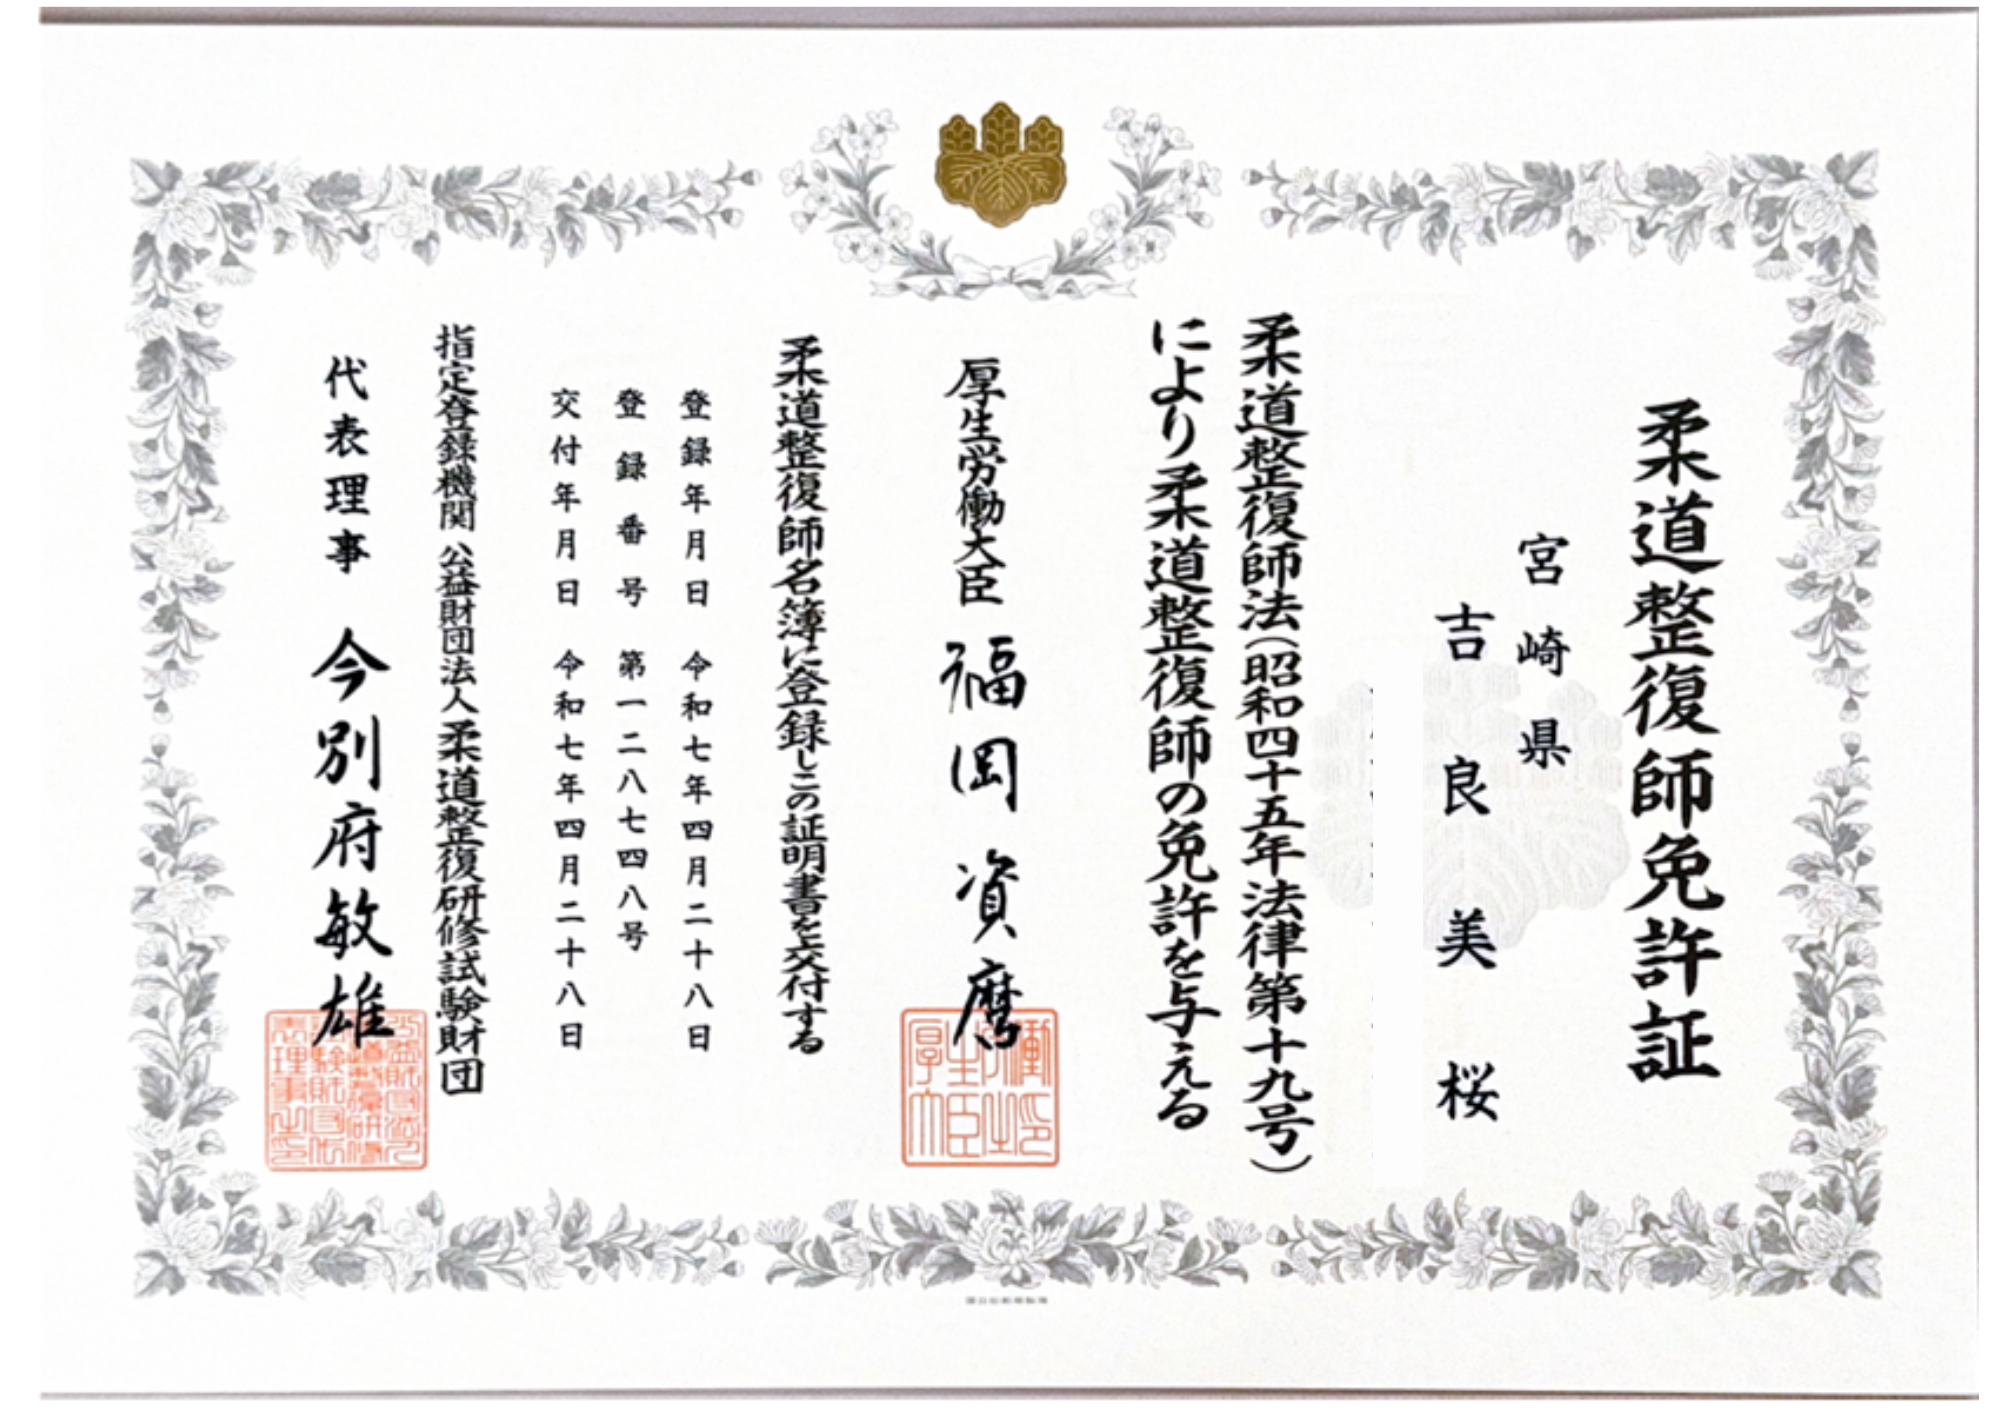 柔道整復師免許証
宮崎県
吉良美桜
柔道整復師法(昭和四十五年法律第十九号)
により柔道整復師の免許を与える
厚生労働大臣 福岡資麿
柔道整復師名簿に登録しこの証明書を交付する
登録年月日 令和七年四月二十八日
登録番号 第一二八七四八号
交付年月日 令和七年四月二十八日
指定登録機関 公益財団法人柔道整復研修試験財団
代表理事 今別府敏雄